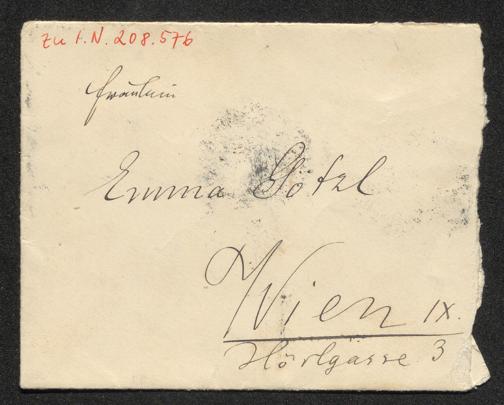 zu I.N. 208.576
Fräulein
Emma Götzl
Wien IX.
Hörlgasse 3